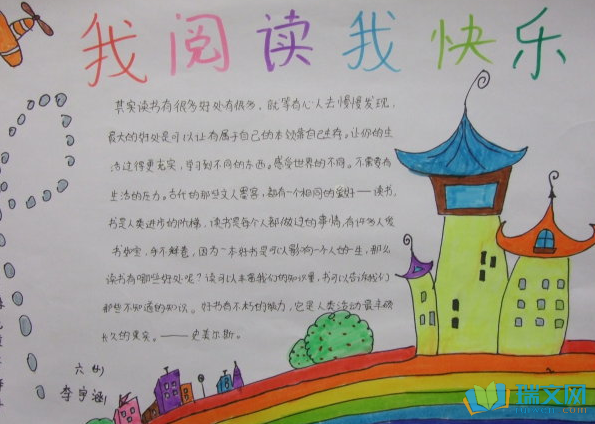 我阅读我快乐
其实读书有很多好处有很多，就等有心人去慢慢发现，
最大的好处是可以让有属于自己的本领靠自己生存。让你的生
活过得更充实，学习到不同的东西。感受世界的不同。不需要有
生活的压力。古代的那些文人墨客，都有个相同的爱好——读书，
书是人类进步的阶梯，读书是每个人都做过的事情，有许多人爱
书如宝，手不释卷，因为一本好书是可以影响一个人的一生，那么
读书有哪些好处呢？读可以丰富我们的知识量，书可以告诉我们
那些不知道的知识。好书有不朽的能力，它是人类活动最丰硕
长久的果实。——史美尔斯。
李宇涵
瑞文网